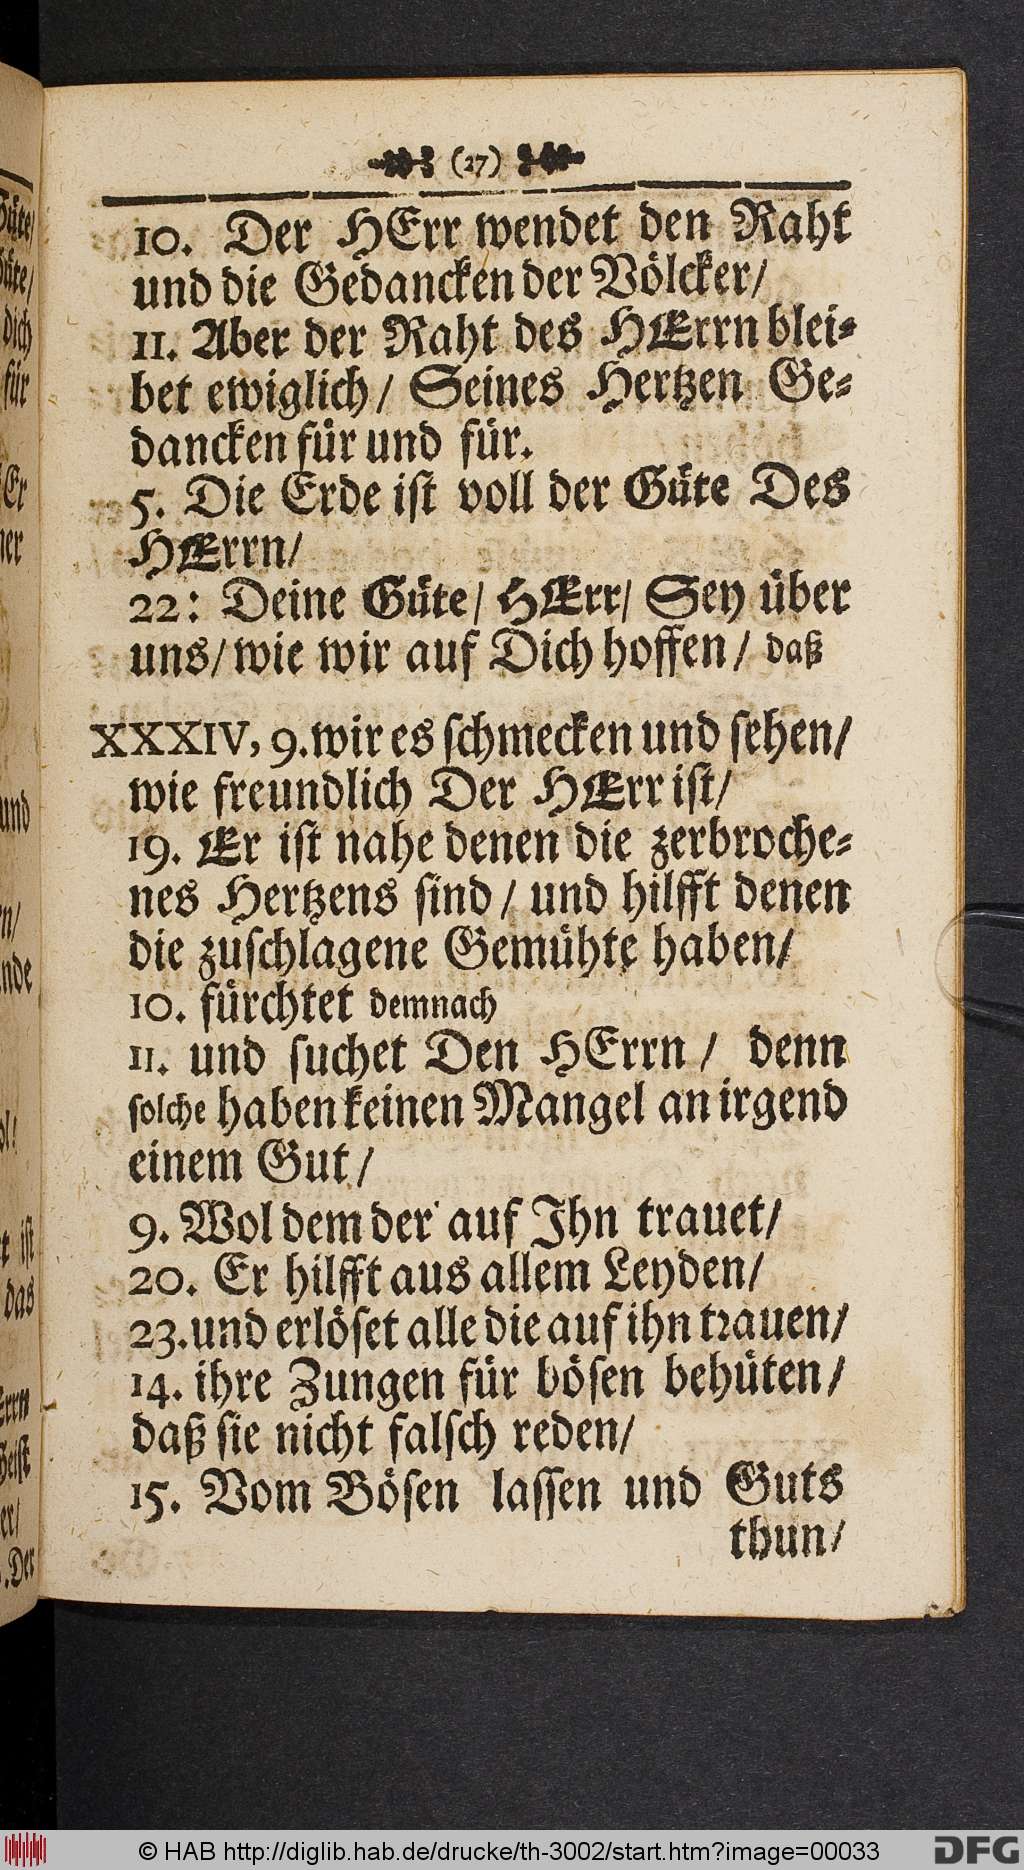 (27)
10. Der HErr wendet den Raht
und die Gedancken der Völcker/
11. Aber der Raht des HErrn blei⸗
bet ewiglich/ Seines Hertzen Ge⸗
dancken für und für.
5. Die Erde ist voll der Güte Des
HErrn/
22: Deine Güte/ HErr/ Sey über
uns/ wie wir auf Dich hoffen/ daß
XXXIV, 9. wir es schmecken und sehen/
wie freundlich Der HErr ist/
19. Er ist nahe denen die zerbroche⸗
nes Hertzens sind/ und hilfft denen
die zuschlagene Gemühte haben/
10. fürchtet demnach
11. und suchet Den HErrn/ denn
solche haben keinen Mangel an irgend
einem Gut/
9. Wol dem der auf Ihn trauet/
20. Er hilfft aus allem Leyden/
23. und erlöset alle die auf ihn trauen/
14. ihre Zungen für bösen behüten/
daß sie nicht falsch reden/
15. Vom Bösen lassen und Guts
thun/
© HAB http://diglib.hab.de/drucke/th-3002/start.htm?image=00033
DFG